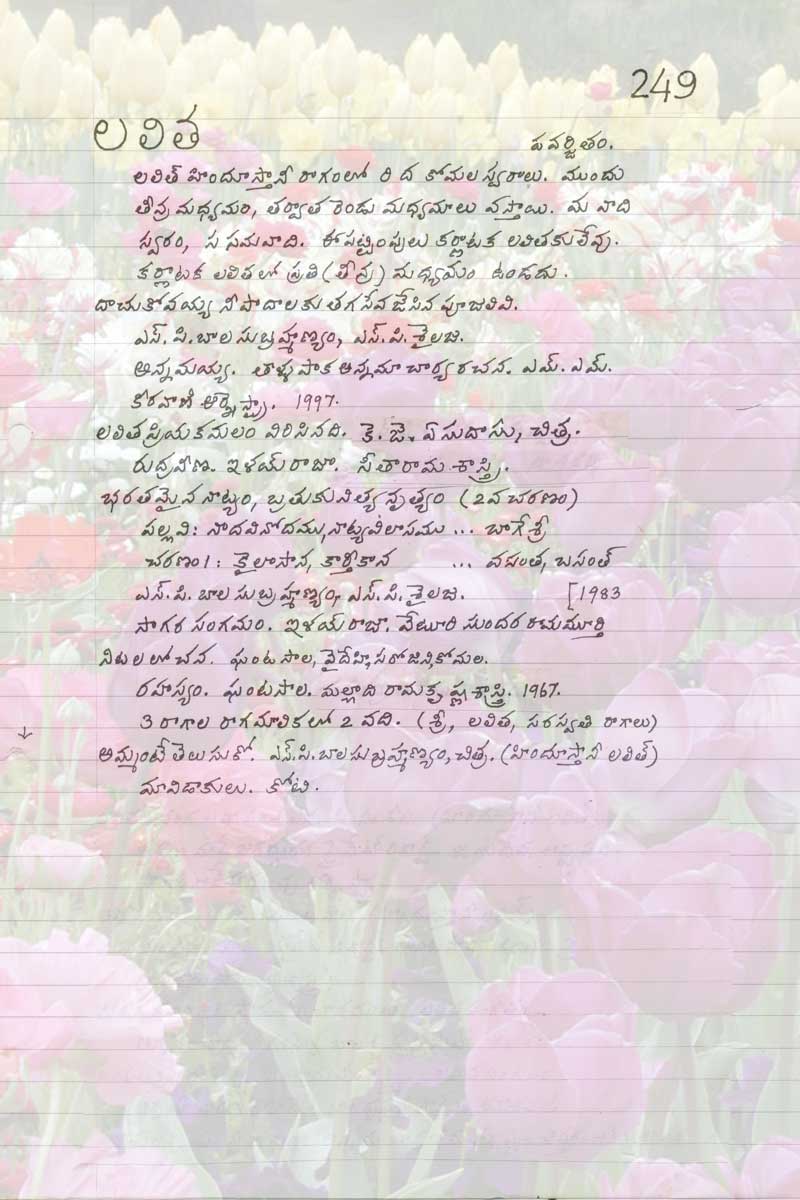 249
లలిత
ప వర్జితం.
లలిత్ హిందూస్తానీ రాగంలో రి ద కోమల స్వరాలు. ముందు
తీవ్ర మధ్యమం, తర్వాత రెండు మధ్యమాలు వస్తాయి. మ వాది
స్వరం, స సమవాది. ఈ పట్టింపులు కర్ణాటక లలితకు లేవు.
కర్ణాటక లలితలో ప్రతి (తీవ్ర) మధ్యమం ఉండదు.
దాచుకోవయ్య నీ పాదాలకు తగ సేవ జేసిన పూజలివి.
ఎస్.పి.బాలసుబ్రహ్మణ్యం, ఎస్.పి.శైలజ.
అన్నమయ్య. తాళ్ళపాక అన్నమాచార్య రచన. ఎమ్.ఎమ్.
కీరవాణి ఆర్కెస్ట్రా. 1997.
లలితప్రియకమలం విరిసినది. కె.జె.ఏసుదాసు, చిత్ర.
రుద్రవీణ. ఇళయ్ రాజా. సీతారామ శాస్త్రి.
భరతమైన నాట్యం, బ్రతుకు నిత్య నృత్యం (2వ చరణం)
పల్లవి: నాదవినోదము, నాట్యవిలాసము ... బాగేశ్రీ
చరణం1: కైలాసాన, కార్తీకాన ... వసంత, బసంత్
ఎస్.పి.బాలసుబ్రహ్మణ్యం, ఎస్.పి.శైలజ. [1983
సాగర సంగమం. ఇళయ్ రాజా. వేటూరి సుందర రామమూర్తి
నిటలలోచన. ఘంటసాల, వైదేహి, సరోజిని, కోమల.
రహస్యం. ఘంటసాల. మల్లాది రామకృష్ణశాస్త్రి. 1967.
3 రాగాల రాగమాలికలో 2 వది. (శ్రీ, లలిత, సరస్వతి రాగాలు)
అమ్మంటే తెలుసుకో. ఎస్.పి.బాలసుబ్రహ్మణ్యం, చిత్ర. (హిందూస్తానీ లలిత్)
మావిడాకులు. కోటి.